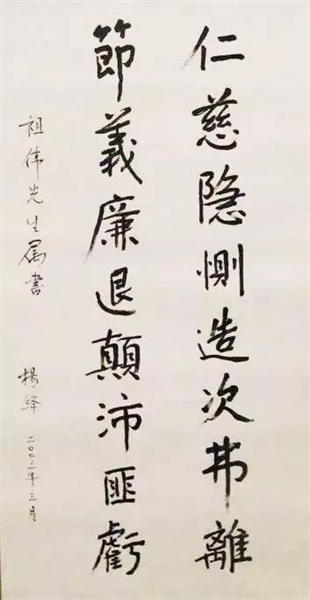 仁慈隐恻造次弗離
節義廉退顛沛匪虧
祖偉先生属書
楊絳 二〇〇三年三月